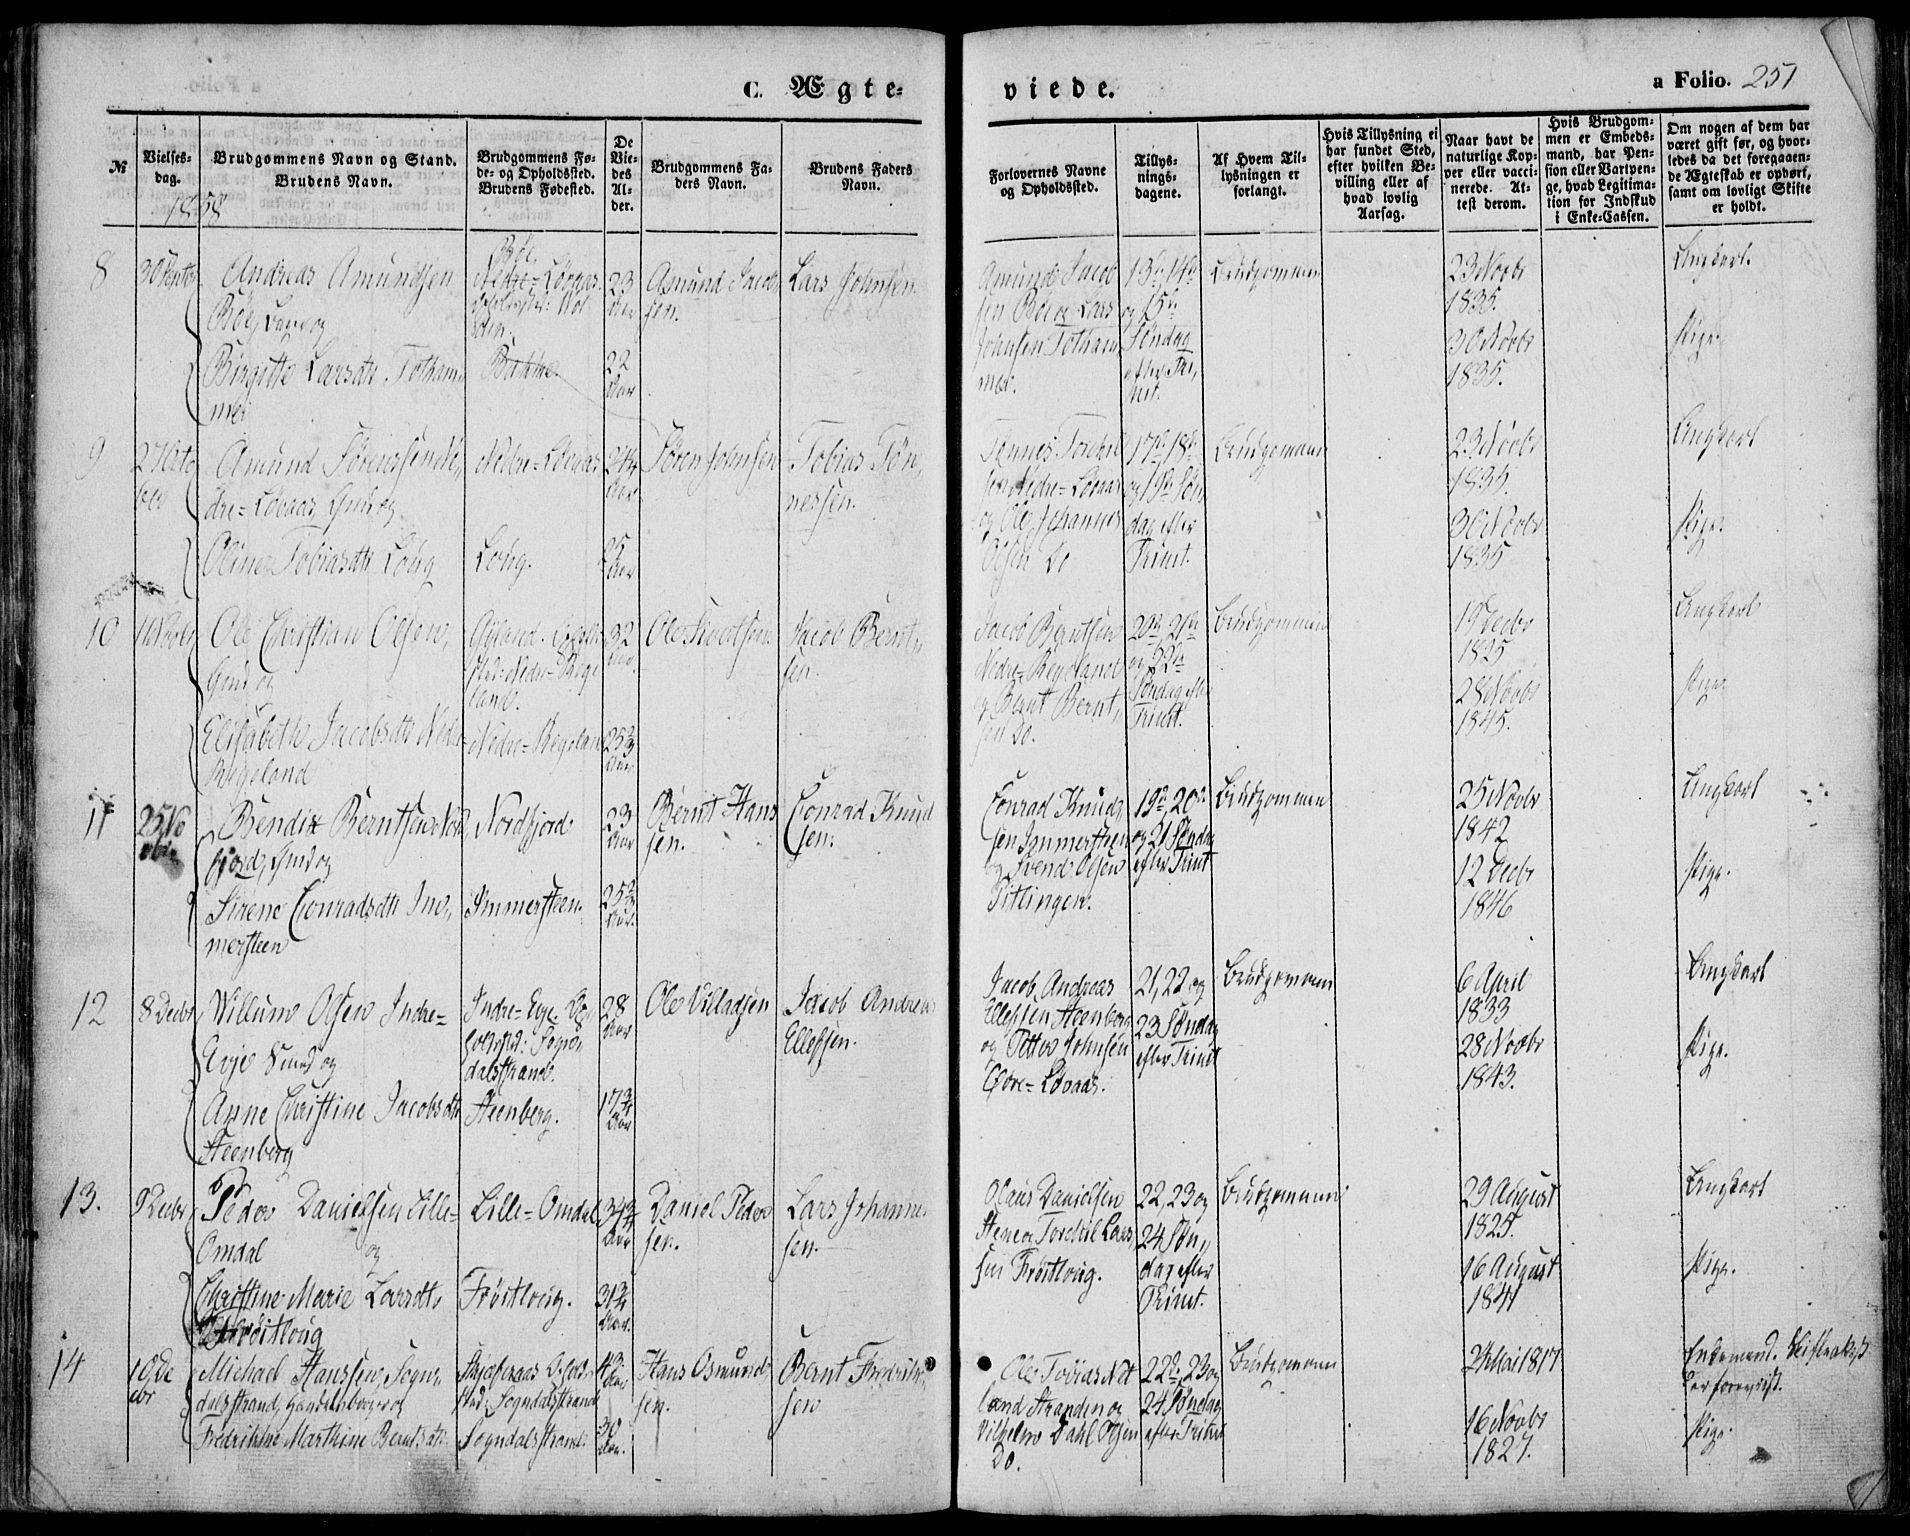 C. Ægte-
viede.
a Folio. 251
№
Vielses-
dag.
Brudgommens Navn og Stand.
Brudens Navn.
Brudgommens Fø-
de- og Opholdssted.
Brudens Fødested.
De
Vie-
des
Al-
der.
Brudgommens Fa-
ders Navn.
Brudens Faders
Navn.
Forlovernes Navne
og Opholdssted.
Tillys-
nings-
dagene.
Af Hvem Til-
lysningen er
forlangt.
Hvis Tillysning ei
har fundet Sted,
efter hvilken Be-
villing eller af
hvad lovlig
Aarsag.
Naar havt de
naturlige Kop-
per eller vacci-
nerede. At-
test derom.
Hvis Brudgom-
men er Embeds-
mand, har Pen-
sion eller Vartpen-
ge, hvad Legitima-
tion for Indskud
i Enke-Cassen.
Om nogen af dem har
været gift før, og hvor-
ledes da det foregaaen-
de Ægteskab er ophørt,
samt om lovligt Skifte
er holdt.
1858
8
Andreas Amundsen
Böe, og
Birgitte Larsdtr Totham,
mer
Böe,
Nedre-Lövaas.
Bakke.
23
Aar
22
Aar
Amund Jacob
sen.
Lars Johnsen
Amund Jacob
sen Böe og Lars
Johnsen Totham
mer.
13de, 14de
og 15de
Söndag
efter Tri,
nit.
Brudgommen
23 Novbr
1835.
30 Novbr
1835.
Ungkarl.
Pige.
9
27 Octo
ber
Amund Sörensen Ne,
dre-Lövaas, Gmd og
Oline Tobiasdtr Lövig
Nedre-Lövaas
Lövig.
24
Aar
25
Aar
Sören Johnsen
Tobias Tön,
nessen.
Tönnes Torkel
sen Nedre-Lövaas
og Ole Johannes
Olsen Do
17de, 18de
og 19de Sön
dag efter
Trinit.
Brudgommen
23 Novbr
1835.
30 Novbr
1835
Ungkarl
Pige.
10
Ole Christian Olsen,
Gmd og
Elisabeth Jacobsdtr Nedre-
Regeland
Nedre-Rege
land.
Nedre-Regeland
32
Aar.
25¾
Aar
Jacob Bernt,
sen.
Jacob Berntsen
Nedre-Regeland
og Bernt Bernt,
sen Do.
20de, 21de
og 22de
Söndag efter
Trinit.
Brudgommen
1 Decbr
1825
28 Novbr
1845.
Ungkarl
Pige
11
25 No
vbr
Bendix Berntsen Nord
fjord, Gmd og
Sirene Conradsdtr Im,
mersteen
Nordfjord
Immersteen.
23
Aar
25¾
Aar.
Bernt Hans
sen.
Conrad Knud
sen.
Conrad Knud,
sen Immersteen
og Svend Olsen
Pitlingen.
19de, 20de
og 21 Söndag
efter Trinit
Brudgommen
25 Novbr
1842
12 Decbr
1846
Ungkarl
Pige.
12
8 Decbr
Villum Olsen Indre-
Evje Gmd og
Anne Christine Jacobsdtr
Steenberg
Indre-Evje. Op,
holdssted: Sogn,
dalsstrand.
Steenberg.
28
Aar
17¾
Aar
Ole Villadsen
Jacob Andreas
Ellefsen.
Jacob Andreas
Ellefsen Steenberg
og Petter Johnsen
Övre-Lövaas.
21, 22 og
23 Söndag
efter Trinit
Brudgommen
6 April
1833
28 Novbr
1843.
Ungkarl
Pige.
13.
9 Decbr
Peder Danielsen Lille-
Omdal
og
Christine Marie Larsdtr
Fröitlovig
Lille-Omdal
Fröitlovig.
34¾
Aar
31¾
Aar.
Daniel Peder
sen.
Lars Johannes
sen.
Olaus Danielsen
Steene og Torkel Lars,
sen Fröitlovig.
22, 23 og
24 Sön,
dag efter
Trinit.
Brudgommen
29 August
1825.
16 August
1841
Ungkarl
Pige.
14
10 De
cbr
Michael Hanssen Sogn,
dalsstrand, Handelsborger og
Fredrikke Marthine Berntsdtr.
Sogndalsstrand
Sogndalsstrand.
43
Aar
30
Aar.
Hans Osmund
sen.
Bernt Fredrik
sen
Ole Tobias Net
land Stranden og
Vilhelm Dahl Olsen
Do.
22de, 23 og
24 Söndag
efter Trinit
Brudgommen
24 Mai 1817
16 Novbr
1827.
Enkemand. Skifteattest
Pige.